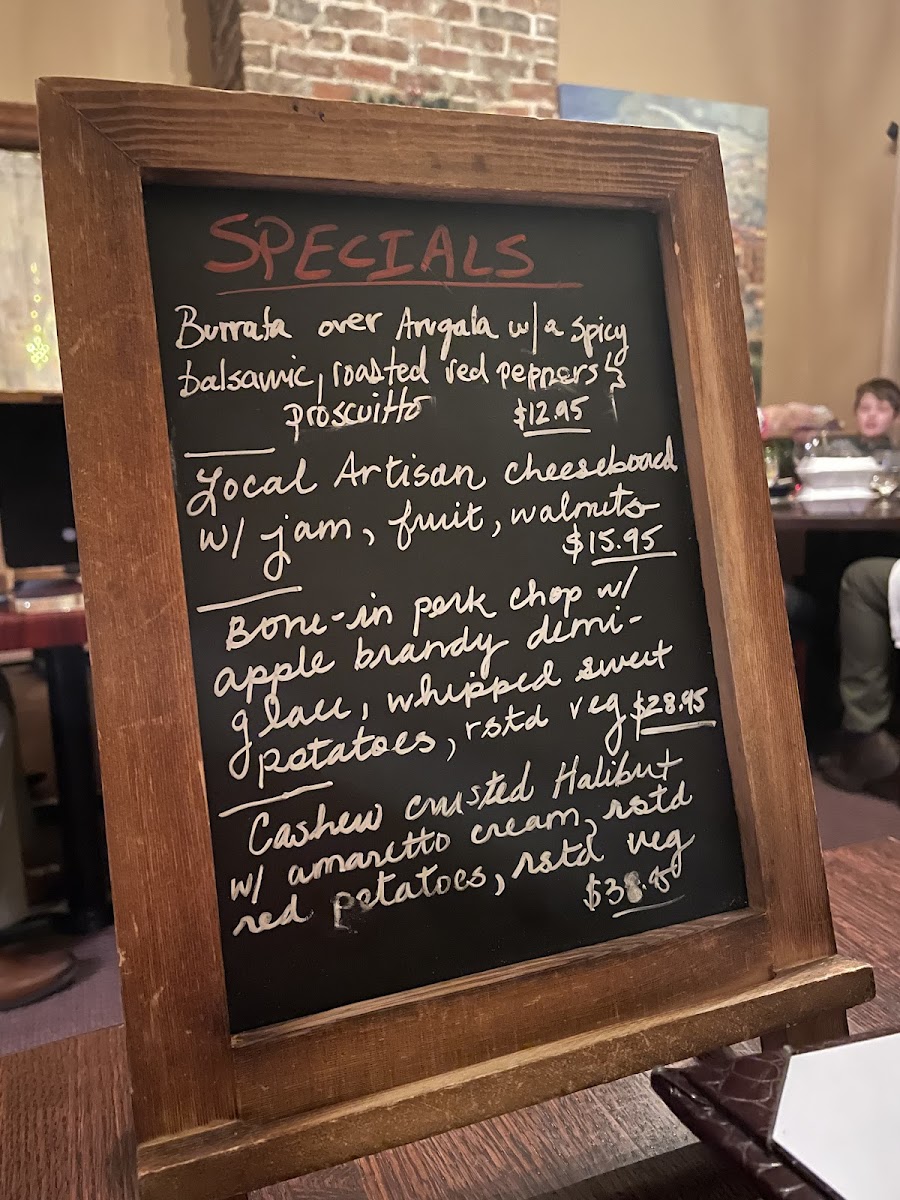 SPECIALS
Burrata over Arugala w/a spicy
balsamic, roasted red peppers &
proscuitto $12.95
Local Artisan cheeseboard
w/ jam, fruit, walnuts
$15.95
Bone-in pork chop w/
apple brandy demi-
glace, whipped sweet
potatoes, rstd veg $28.95
Cashew crusted Halibut
w/ amaretto cream, rstd
red potatoes, rstd veg